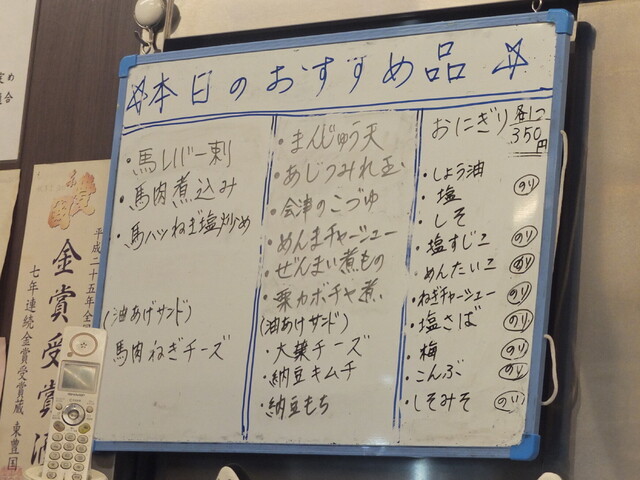 ☆本日のおすすめ品☆
・馬レバー刺
・馬肉煮込み
・馬ハツねぎ塩炒め
(油あげサンド)
馬肉ねぎチーズ
・まんじゅう天
・あじつみれ玉
・会津のこづゆ
・めんまチャーシュー
・ぜんまい煮もの
・栗カボチャ煮
(油あげサンド)
・大葉チーズ
・納豆キムチ
・納豆もち
おにぎり 各1つ 350円
・しょう油
・塩 のり
・しそ
・塩すじこ のり
・めんたいこ のり
・ねぎチャーシュー のり
・塩さば のり
・梅 のり
・こんぶ のり
・しそみそ のり
金賞受賞酒
平成二十五年全国
七年連続金賞受賞蔵 東豊国